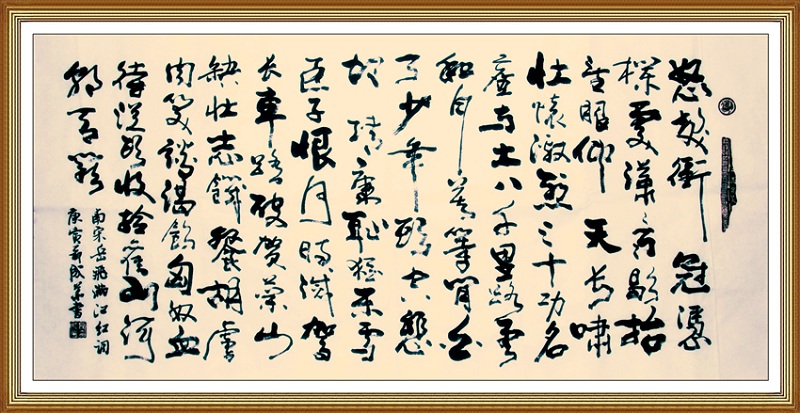 怒髮衝冠憑
欄處瀟瀟雨歇抬
望眼仰天長嘯
壯懷激烈三十功名
塵與土八千里路雲
和月莫等閒白
了少年頭空悲
切靖康耻猶未雪
臣子恨何時滅駕
長車踏破賀蘭山
缺壯志饑餐胡虜
肉笑談渴飲匈奴血
待從頭收拾舊山河
朝天闕
南宋岳飛滿江紅詞
庚寅書